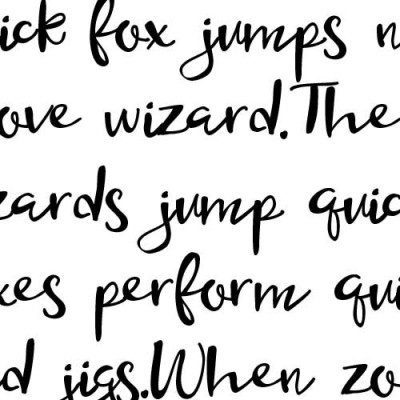 ick fox jumps n
ove wizard.The
zards jump quic
xes perform qui
d jigs.When zo